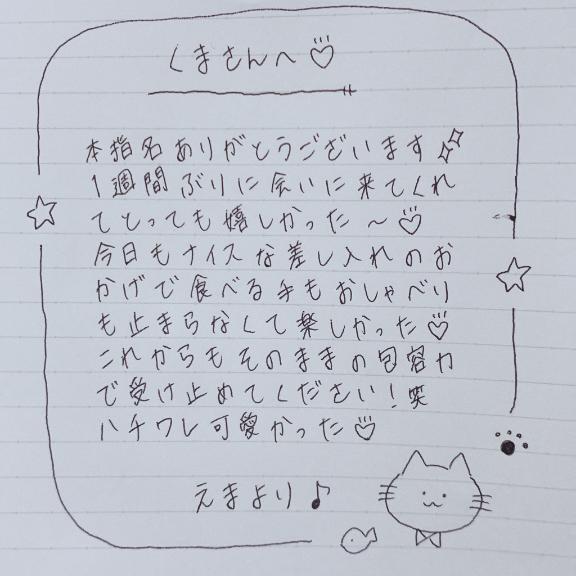 くまさんへ♡
本指名ありがとうございます
1週間ぶりに会いに来てくれ
てとっても嬉しかった〜♡
今日もナイスな差し入れのお
かげで食べる手もおしゃべり
も止まらなくて楽しかった♡
これからもそのままの包容力
で受け止めてください！笑
ハチワレ可愛かった♡
えまより♪